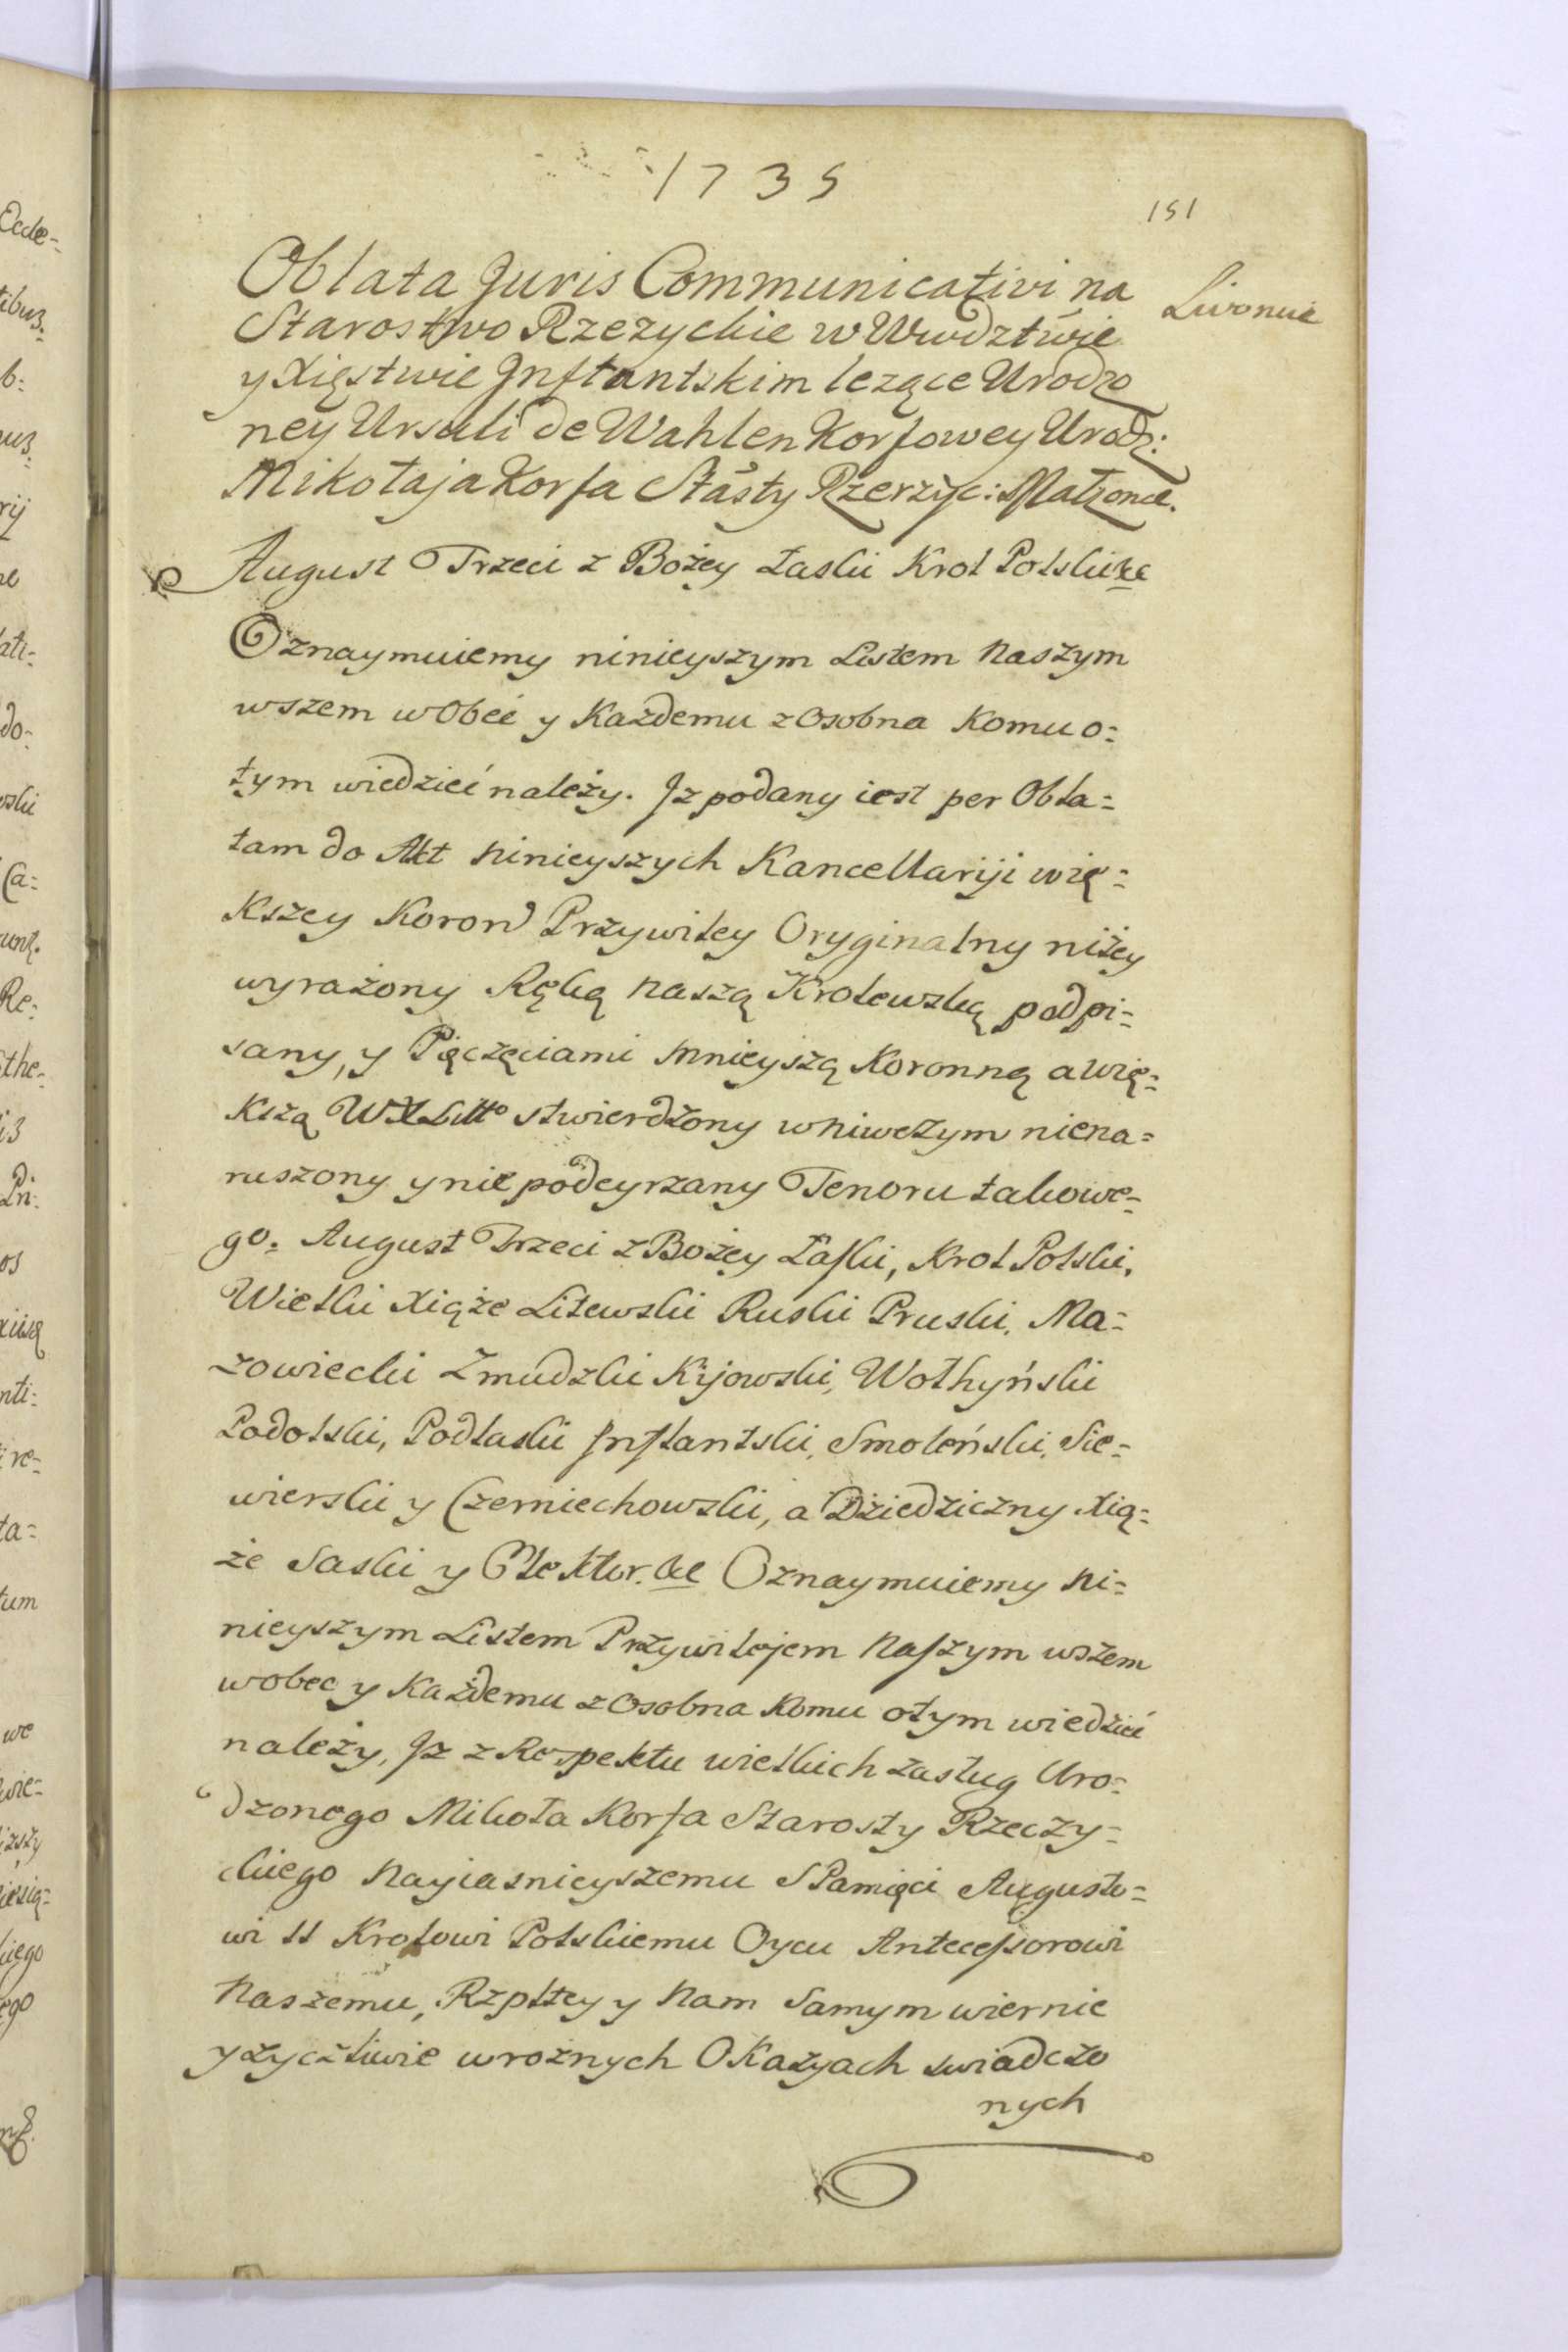 1735
151
Oblata Juris Communicativi na
Livoniae
Starostwo Rzezyckie w Wwdztwie
y Xięstwie Inflantskim lezące Urodzo
ney Ursuli de Wahlen Korfowey Urodz:
Mikołaja Korfa Stasty Rzerzyc: Małzonce.
August Trzeci z Bożey Łaski Krol Polski &c
Oznaymuiemy ninieyszym Listem Naszym
wszem wobec y Każdemu z Osobna Komu o=
tym wiedzieć należy. Iz podany iest per Obla=
tam do Akt Ninieyszych Kancellariji wię=
kszey Koron Przywiley Oryginalny niżey
wyrażony Ręką Naszą Krolewską podpi=
sany, y Pięczęciami Mnieyszą Koronną a Wię=
kszą WXLitto stwierdzony wniwczym niena=
ruszony y nie podeyrzany Tenoru takowe=
go. August Trzeci z Bożey Łaski, Krol Polski,
Wielki Xiąże Litewski Ruski Pruski, Ma=
zowiecki Zmudzki Kijowski, Wołhyński
Podolski, Podlaski Inflantski, Smoleński, Sie=
wierski y Czerniechowski, a Dziedziczny Xią=
że Saski y Elektor. &c Oznaymuiemy Ni=
nieyszym Listem Przywilejem Naszym wszem
wobec y Każdemu z Osobna Komu otym wiedzieć
należy, Iz z Respektu wielkich zasług Uro=
dzonego Mikoła Korfa Starosty Rzeczy=
ckiego Nayiasnieyszemu S Pamięci Augusto=
wi II Krolowi Polskiemu Oycu Antecessorowi
Naszemu, Rzpltey y Nam Samym wiernie
y życzliwie wrożnych Okazyach swiadczo
nych